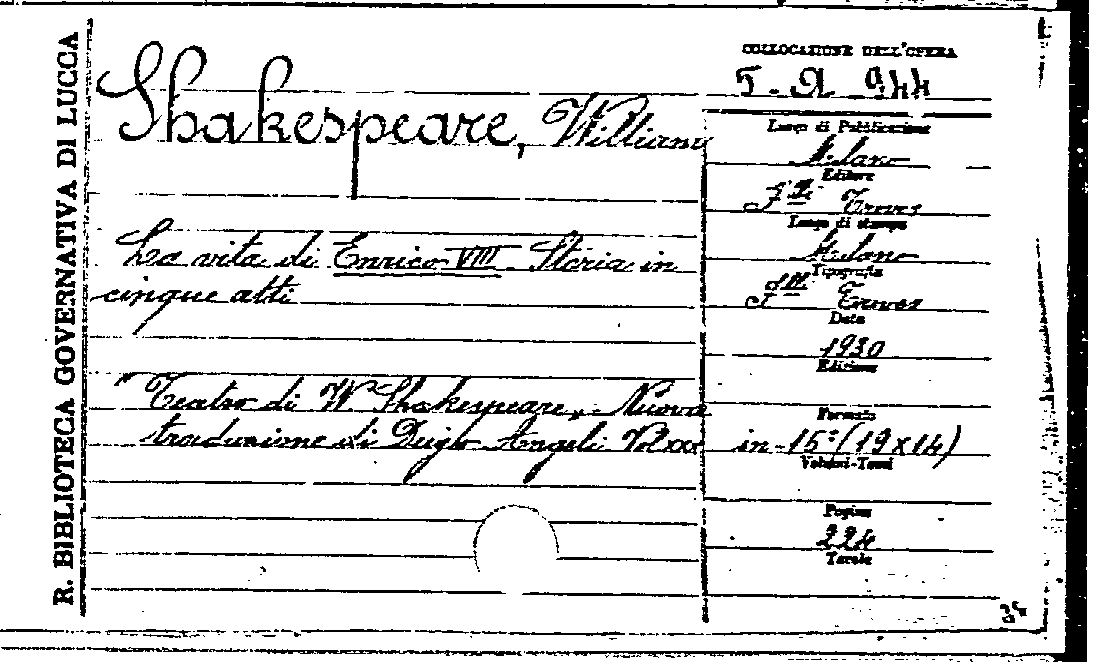 R. BIBLIOTECA GOVERNATIVA DI LUCCA
Shakespeare, William
La vita di Enrico VIII. Storia in
cinque atti
"Teatro di W Shakespeare,, Nuova
traduzione di Diego Angeli Vol xxx
COLLOCAZIONE DELL'OPERA
944
Luogo di Pubblicazione
Milano
Editore
F.lli Treves
Luogo di stampa
Milano
Tipografia
F.lli Treves
Data
1930
Edizione
Formato
in-16° (19x14)
Volumi-Tomi
Pagine
224
Tavole